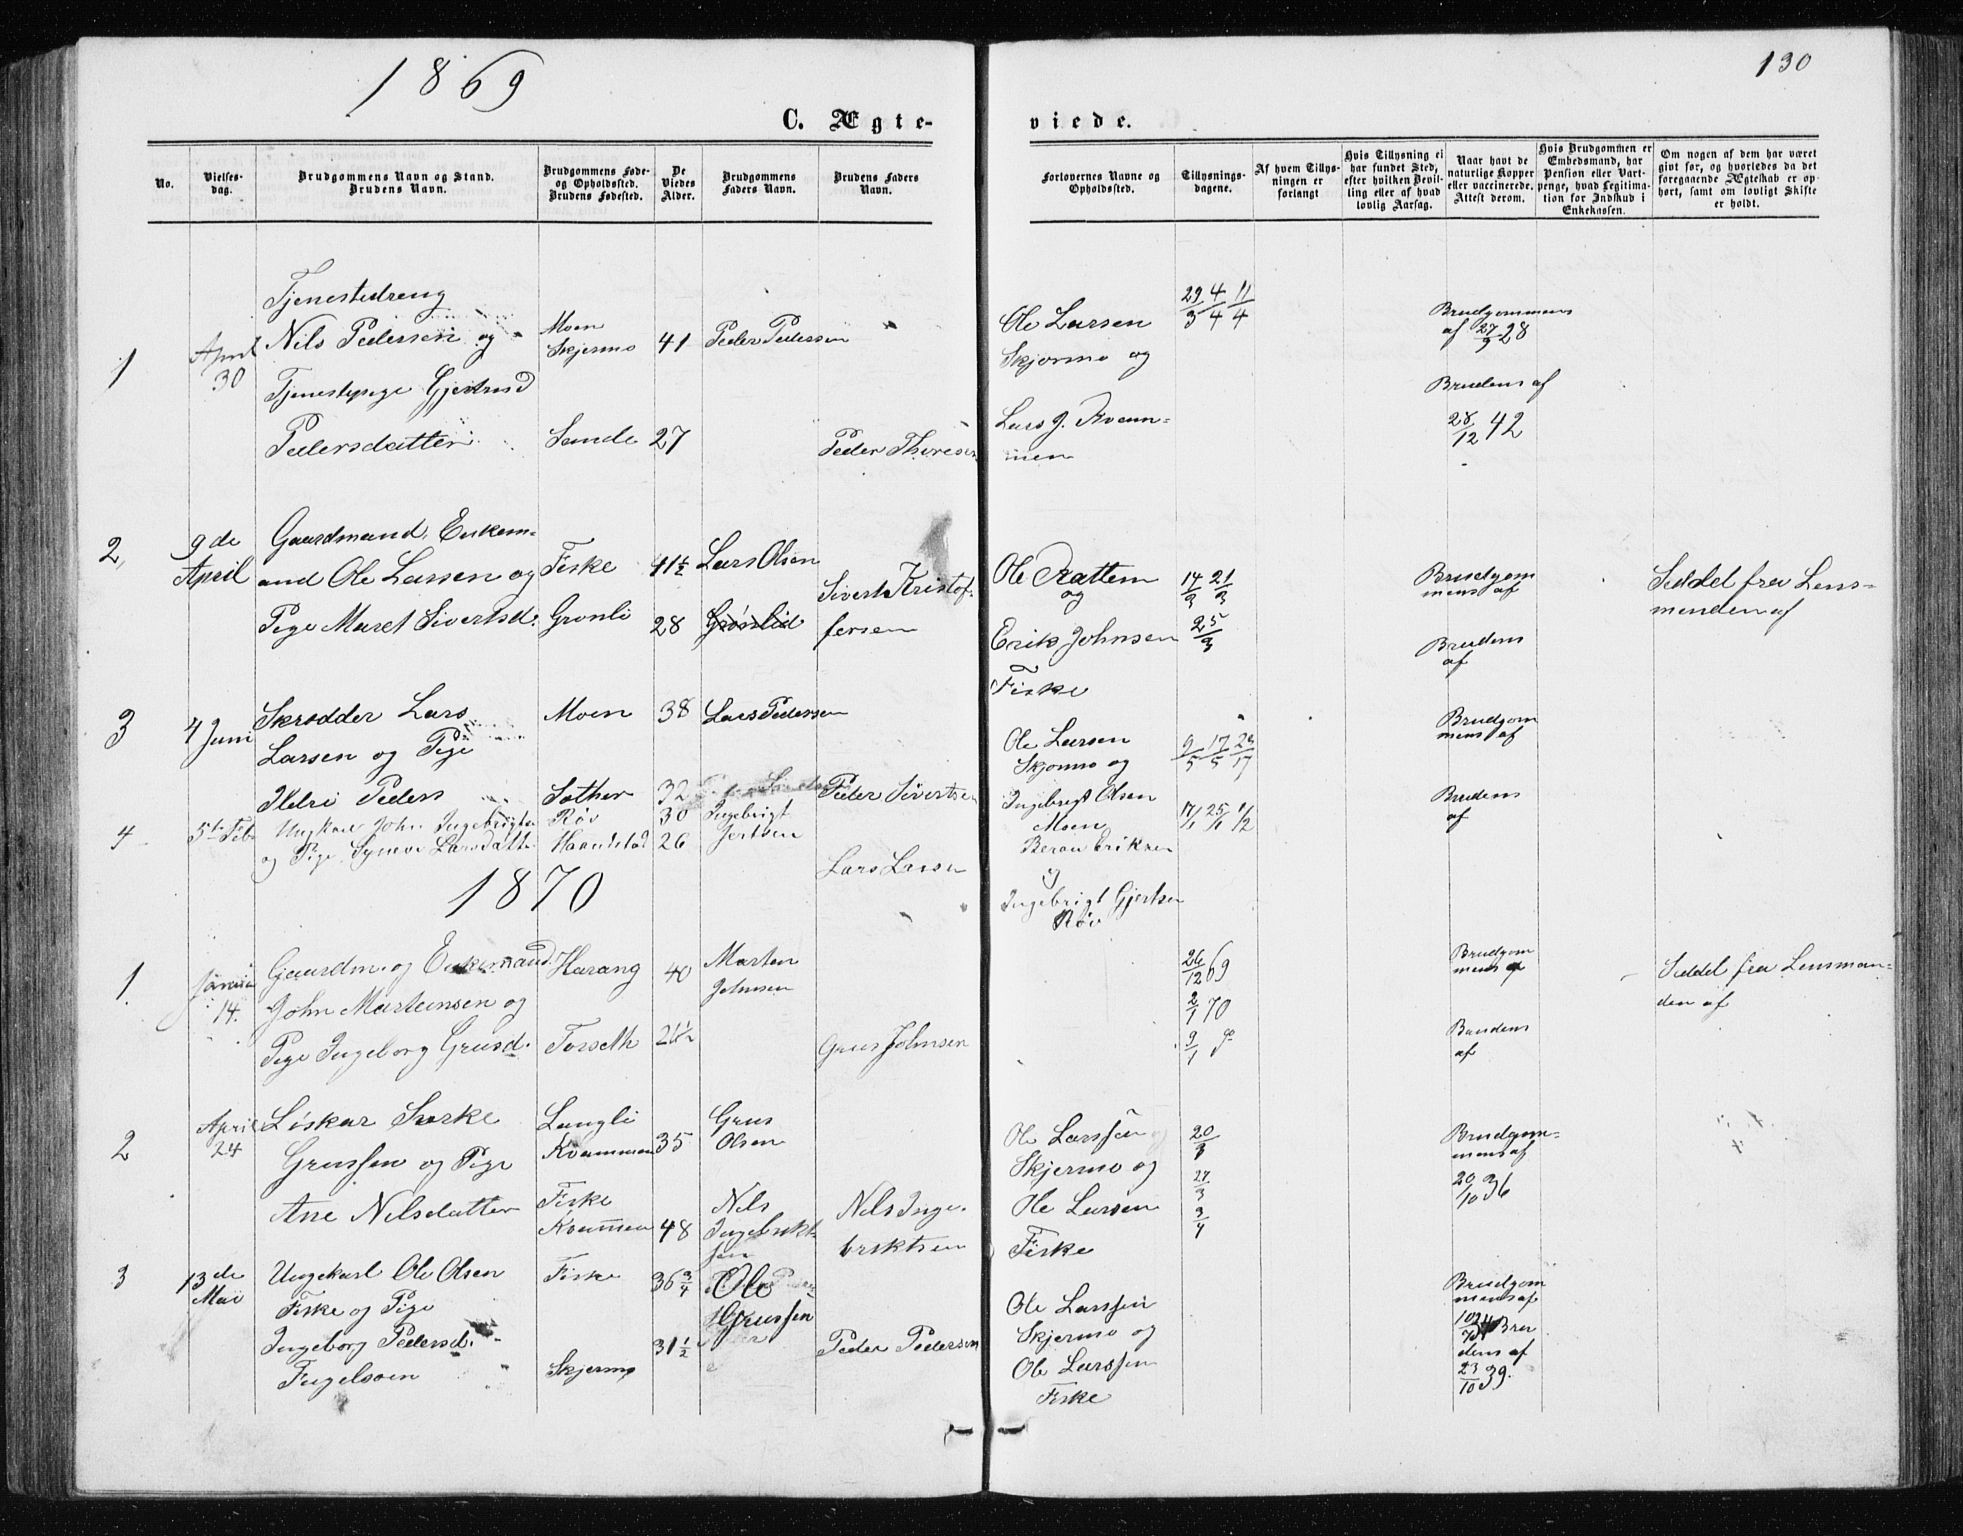 1869
130
C. Ægte-
viede.
No.
Vielses-
dag.
Brudgommens Navn og Stand.
Brudens Navn.
Brudgommens Føde-
og Opholdssted.
Brudens Fødested.
De
Viedes
Alder.
Brudgommens
Faders Navn.
Brudens Faders
Navn.
Forlovernes Navne og
Opholdssted.
Tillysnings-
dagene.
Af hvem Tillys-
ningen er
forlangt
Hvis Tillysning ei
har fundet Sted,
efter hvilken Bevil-
ling eller af hvad
lovlig Aarsag.
Naar havt de
naturlige Kopper
eller vaccinerede.
Attest derom.
Hvis Brudgommen er
Embedsmand, har
Pension eller Vart-
penge, hvad Legitima-
tion for Indskud i
Enkekassen.
Om nogen af dem har været
givt før, og hvorledes da det
foregaaende Ægteskab er op-
hørt, samt om lovligt Skifte
er holdt.
1
April
30
Tjenestedreng
Nils Pedersen og
Tjenestepige Gjertrud
Pedersdatter
Moen
Skjermo
Sande
41
27
Peder Pedersen
Peder Thoresen
Ole Larsen
Skjørmo og
Lars J. Kvam-
men
29/3 4/4 11/4
Brudgommens
af 27/9 28
Brudens af
28/12 42
2,
9de
April
Gaardmand, Enkem-
and Ole Larsen og
Pige Maret Sivertsd.
Fiske
Grønli
41½
28
Lars Olsen
Grønlid
Sivert Kristof-
fersen
Ole Rattem
og
Erik Johnsen
Fiske
14/3 21/3
25/3
Brudgom
mens af
Brudens
af
Seddel fra Lens-
manden af
3
4 Juni
Skrædder Lars
Larsen og Pige
Ildri Peders
Moen
Sæther
38
32
Lars Pedersen
Peder Sivertsen
Ole Larsen
Skjørmo og
Ingebrigt Olsen
Moen
9/5 17/5
Brudgom
mens af
Brudens
af
4
5te Feb
Ungkarl John Ingebrigtsen
og Pige Synøve Larsdatter
Røv
Haandstad
30
26
Ingebrigt
Jertsen
Lars Larsen
Beron Eriksen
og
Ingebrigt Gjertsen
Røv
17/1 25/1 1/2
1870
1
Januar
14.
Gaardm. og Enkemand
John Martinsen og
Pige Ingeborg Grusd.
Harang
Forseth
40
21½
Morten
Johnsen
Grus Johnsen
26/12 69
2/1 70
9/1
Brudgom
mens af
Brudens
af
Seddel fra Lensman-
den af
2
April
24
Løskar Sirke
Grussen og Pige
Ane Nilsdatter
Langli
Kvammen
Fiske
Kvammen
35
48
Grus
Olsen
Nils
Ingebrikt
sen
Nils Inge-
briktsen
Ole Larssen
Skjermo og
Ole Larsen
Fiske
20/3
27/3
3/4
Brudgom-
mens af
20/10 36
3
13de
Mai
Ungekarl Ole Olsen
Fiske og Pige
Ingeborg Pedersd.
Fugelsøen
Fiske
Skjermo
36¾
31½
Ole
Grussen
Peder Pedersen
Ole Larssen
Skjermo og
Ole Larssen
Fiske
Brudgom
mens af
Bru
dens af
23/10 39.